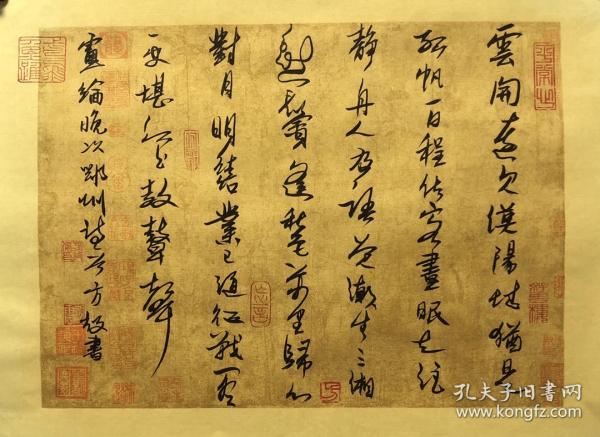 雲開遠見漢陽城猶是
孤帆一日程估客晝眠知浪
静舟人夜語覺潮生三湘
愁鬢逢秋色萬里歸心
對月明舊業已隨征戰盡
更堪江上鼓鼙聲
盧綸晚次鄂州詩 書
孔夫子旧书网
www.kongfz.com